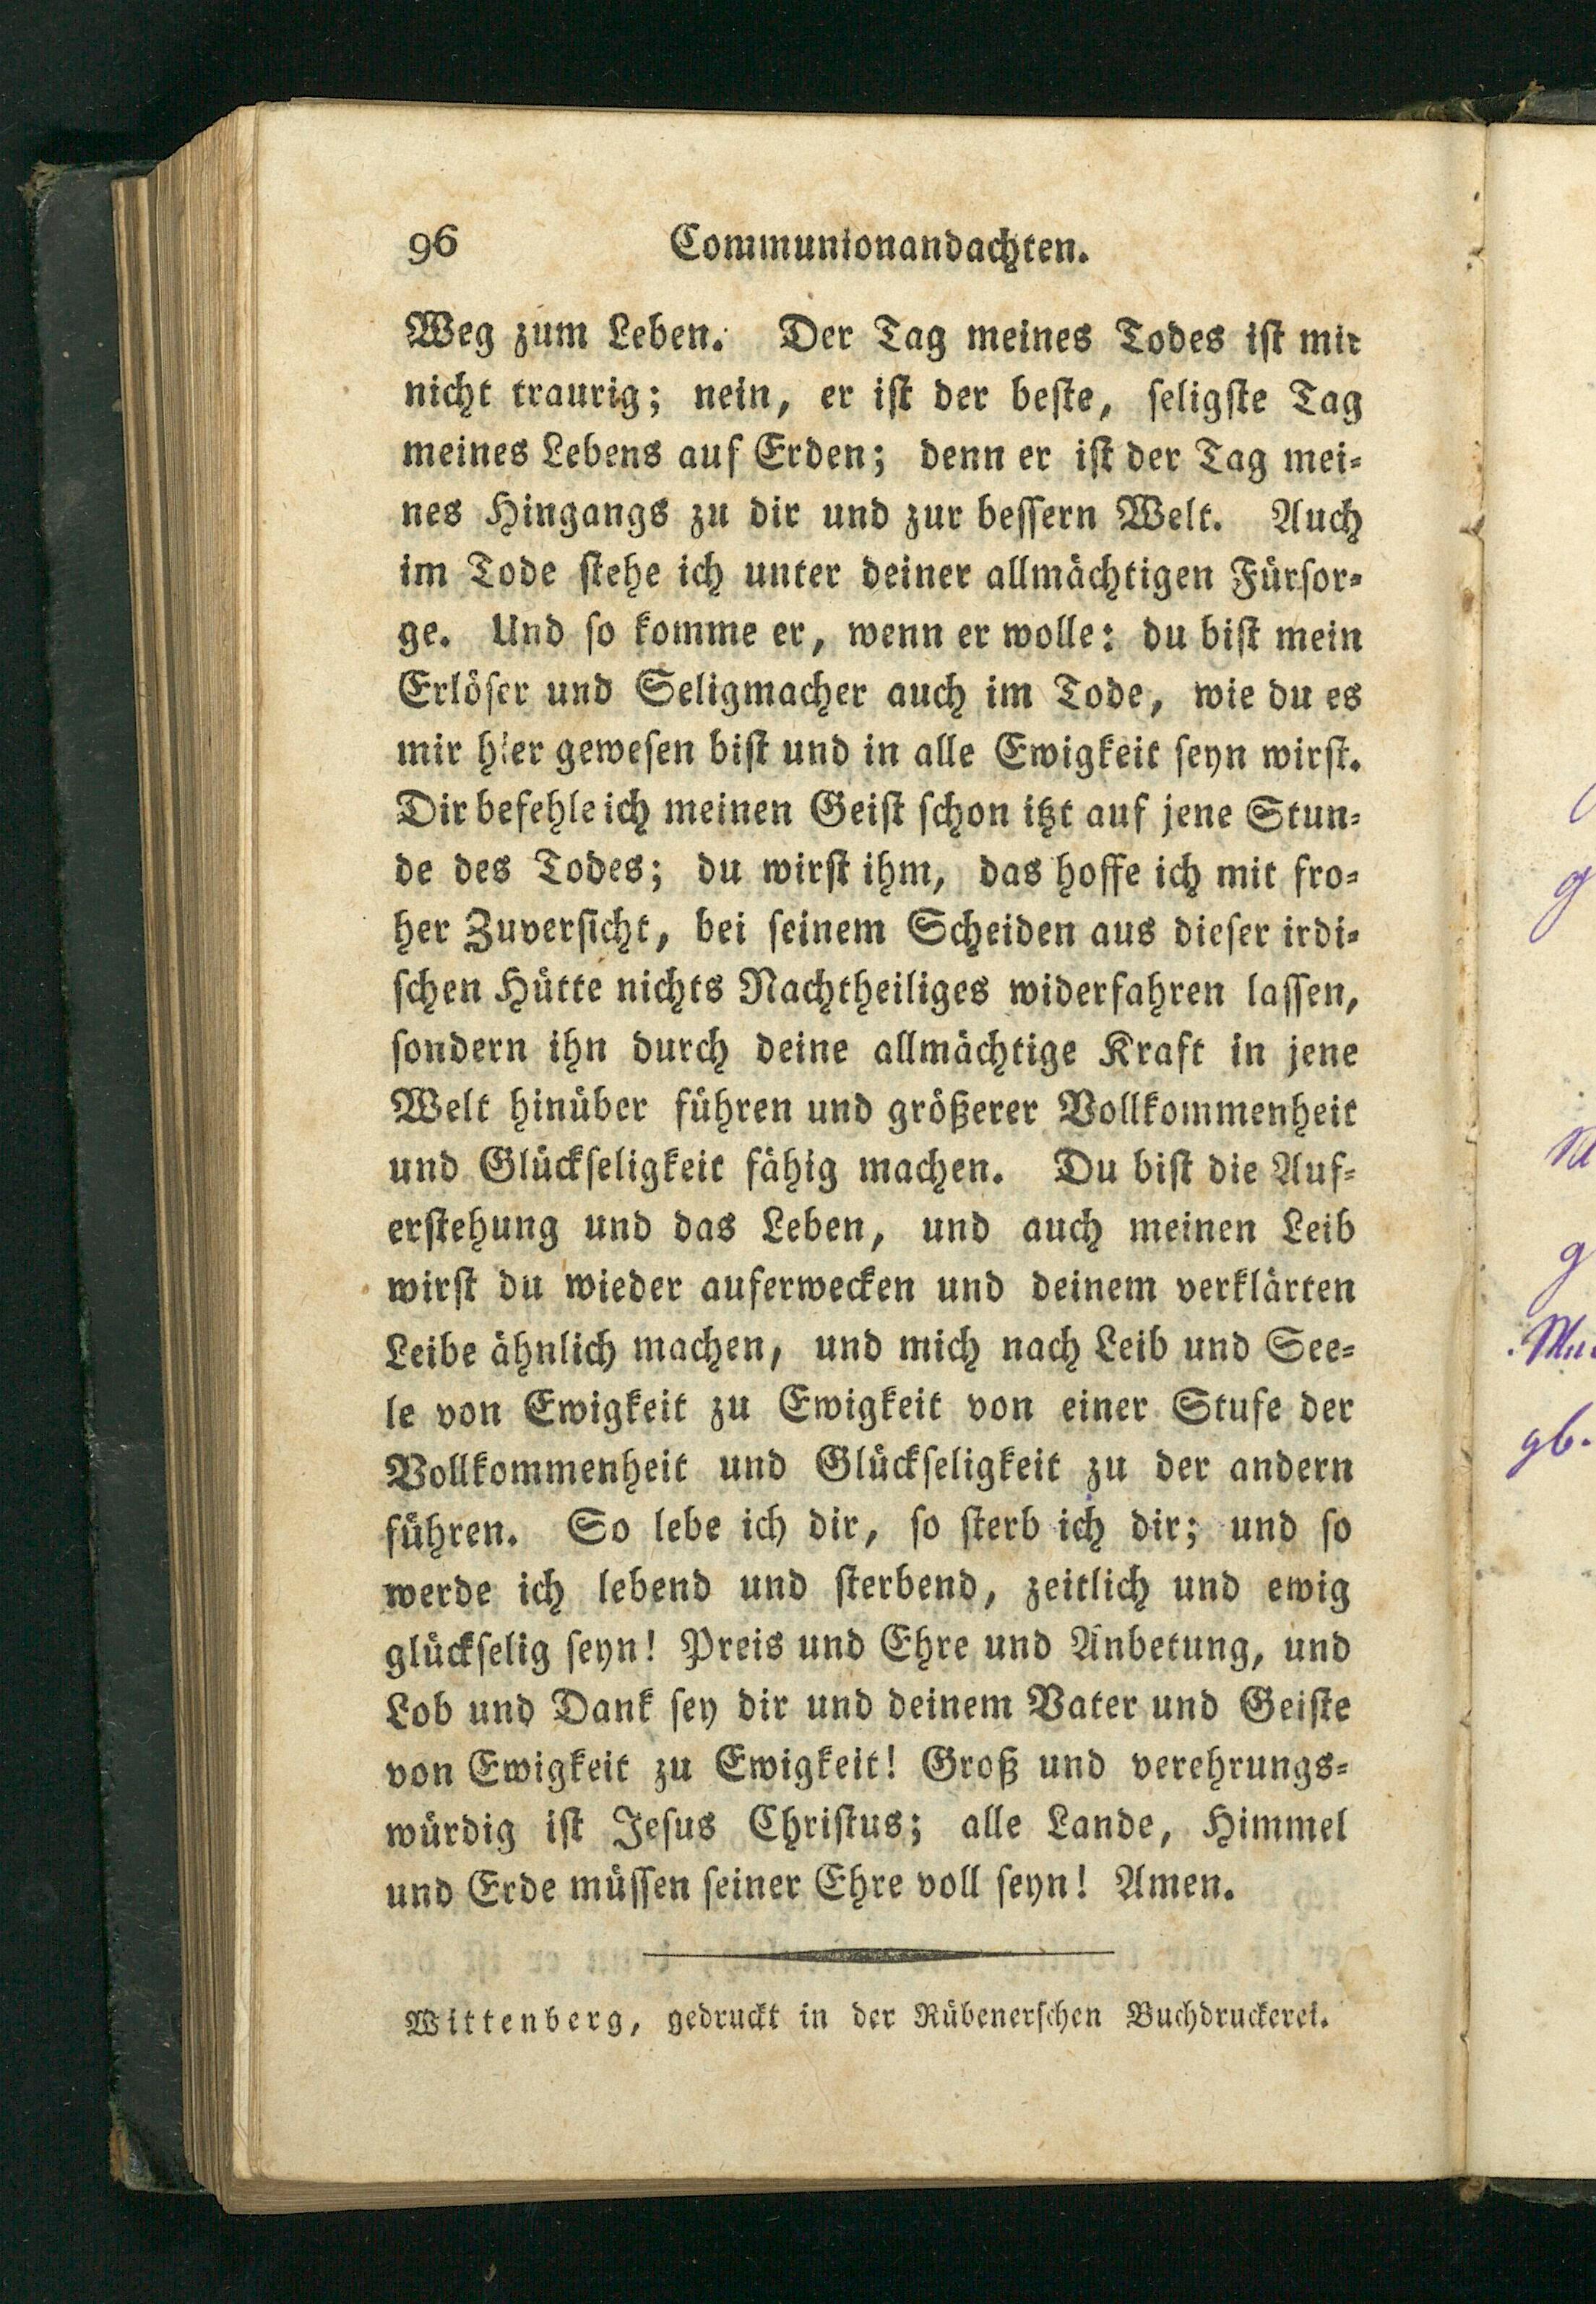 96 Communionandachten.
Weg zum Leben. Der Tag meines Todes iſt mir
nicht traurig; nein, er iſt der beſte, ſeligſte Tag
meines Lebens auf Erden; denn er iſt der Tag mei⸗
nes Hingangs zu dir und zur beſſern Welt. Auch
im Tode ſtehe ich unter deiner allmächtigen Fürſor⸗
ge. Und ſo komme er, wenn er wolle: du biſt mein
Erlöſer und Seligmacher auch im Tode, wie du es
mir hier geweſen biſt und in alle Ewigkeit ſeyn wirſt.
Dir befehle ich meinen Geiſt ſchon itzt auf jene Stun⸗
de des Todes; du wirſt ihm, das hoffe ich mit fro⸗
her Zuverſicht, bei ſeinem Scheiden aus dieſer irdi⸗
ſchen Hütte nichts Nachtheiliges widerfahren laſſen,
ſondern ihn durch deine allmächtige Kraft in jene
Welt hinüber führen und größerer Vollkommenheit
und Glückſeligkeit fähig machen. Du biſt die Auf⸗
erſtehung und das Leben, und auch meinen Leib
wirſt du wieder auferwecken und deinem verklärten
Leibe ähnlich machen, und mich nach Leib und See⸗
le von Ewigkeit zu Ewigkeit von einer Stufe der
Vollkommenheit und Glückſeligkeit zu der andern
führen. So lebe ich dir, ſo ſterb ich dir; und ſo
werde ich lebend und ſterbend, zeitlich und ewig
glückſelig ſeyn! Preis und Ehre und Anbetung, und
Lob und Dank ſey dir und deinem Vater und Geiſte
von Ewigkeit zu Ewigkeit! Groß und verehrungs⸗
würdig iſt Jeſus Chriſtus; alle Lande, Himmel
und Erde müſſen ſeiner Ehre voll ſeyn! Amen.
Wittenberg, gedruckt in der Rübenerſchen Buchdruckerei.